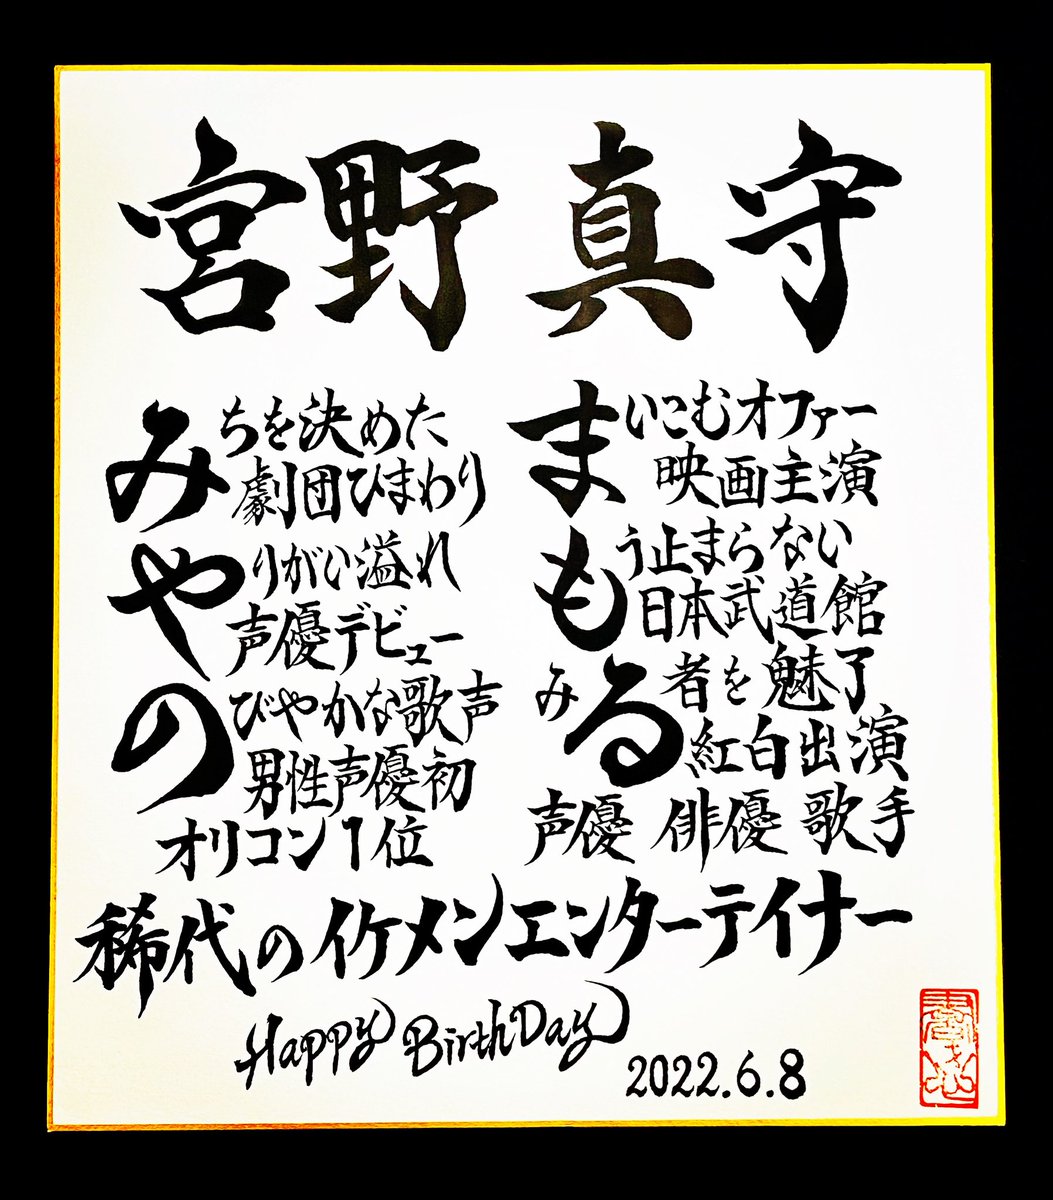 宮野 真守
みちを決めた
劇団ひまわり
やりがい溢れ
声優デビュー
のびやかな歌声
男性声優初
オリコン1位
まいこむオファー
映画主演
もう止まらない
日本武道館
みる者を魅了
紅白出演
声優 俳優 歌手
稀代のイケメンエンターテイナー
Happy BirthDay
2022.6.8